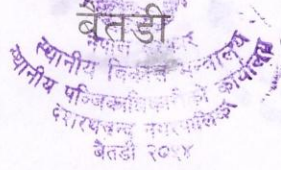 बैतडी
स्थानीय विकास मन्त्रालय
स्थानीय पञ्जिकाधिकारीको कार्यालय
दशरथचन्द नगरपालिका
बैतडी २०५४